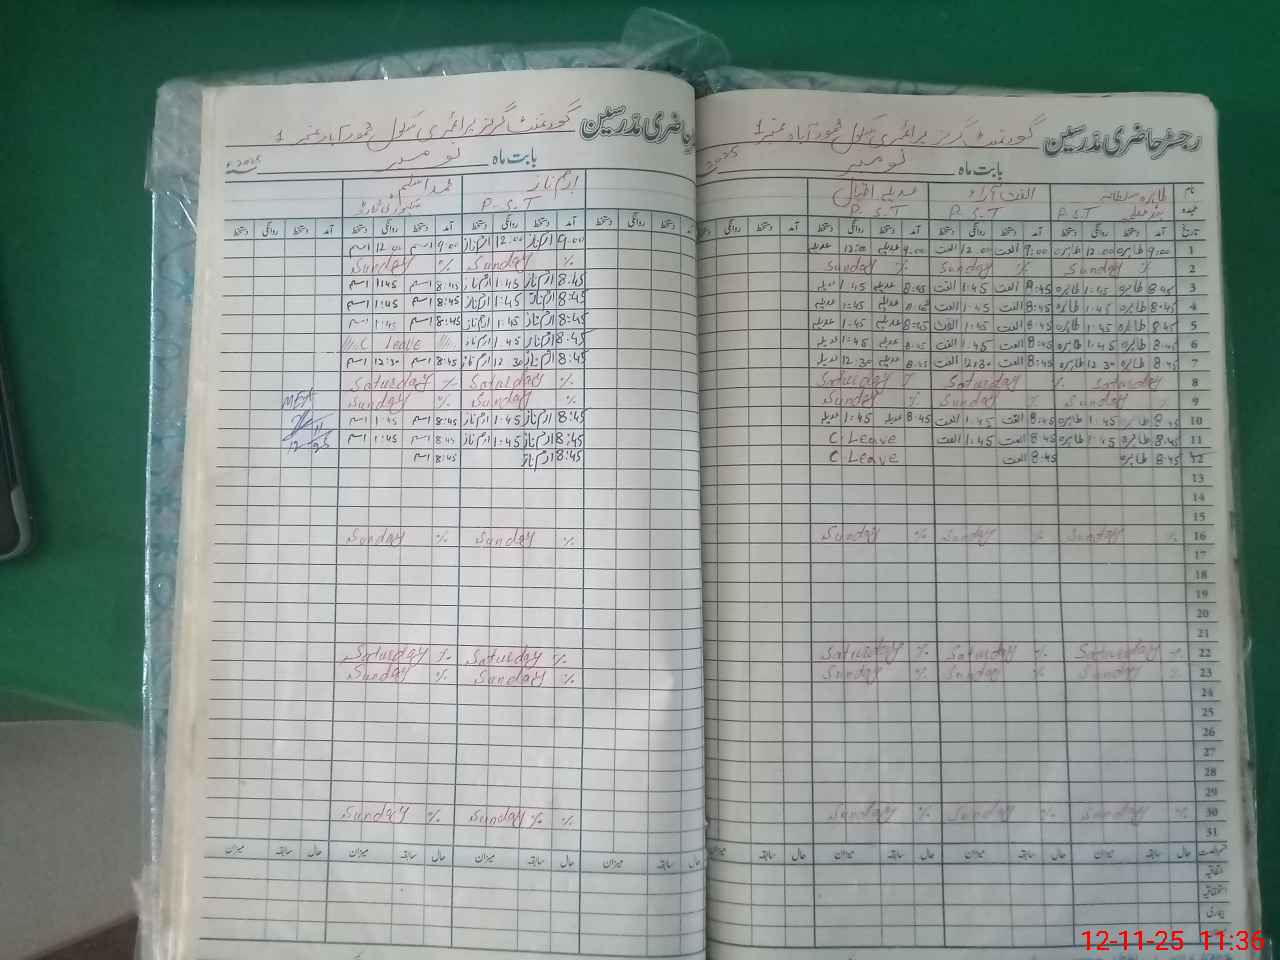 رجسٹر حاضری مدرسین گورنمنٹ گرلز پرائمری سکول محمود آباد نمبر 1
بابت ماہ نومبر 2025
نام طاہرہ سلطانہ الفت آراء عدیلہ اقبال
عہدہ P.S.T P.S.T P.S.T
تاریخ آمد دستخط روانگی دستخط آمد دستخط روانگی دستخط آمد دستخط روانگی دستخط آمد دستخط روانگی دستخط
1 9:00 طاہرہ 12:00 طاہرہ 9:00 الفت 12:00 الفت 9:00 عدیلہ 12:00 عدیلہ
2 % Sunday % Sunday % Sunday
3 8:45 طاہرہ 1:45 طاہرہ 8:45 الفت 1:45 الفت 8:45 عدیلہ 1:45 عدیلہ
4 8:45 طاہرہ 1:45 طاہرہ 8:45 الفت 1:45 الفت 8:45 عدیلہ 1:45 عدیلہ
5 8:45 طاہرہ 1:45 طاہرہ 8:45 الفت 1:45 الفت 8:45 عدیلہ 1:45 عدیلہ
6 8:45 طاہرہ 1:45 طاہرہ 8:45 الفت 1:45 الفت 8:45 عدیلہ 1:45 عدیلہ
7 8:45 طاہرہ 12:30 طاہرہ 8:45 الفت 12:30 الفت 8:45 عدیلہ 12:30 عدیلہ
8 Saturday % Saturday % Saturday
9 % Sunday % Sunday % Sunday
10 8:45 طاہرہ 1:45 طاہرہ 8:45 الفت 1:45 الفت 8:45 عدیلہ 1:45 عدیلہ
11 8:45 طاہرہ 1:45 طاہرہ 8:45 الفت 1:45 الفت C-Leave
12 8:45 طاہرہ 8:45 الفت C-Leave
13
14
15
16 % Sunday % Sunday % Sunday
17
18
19
20
21
22 % Saturday % Saturday % Saturday
23 % Sunday % Sunday % Sunday
24
25
26
27
28
29
30 % Sunday % Sunday % Sunday
31
حال سابقہ میزان حال سابقہ میزان حال سابقہ میزان حال سابقہ
اتفاقیہ
استحقاقیہ
بیماری
رجسٹر حاضری مدرسین گورنمنٹ گرلز پرائمری سکول محمود آباد نمبر 1
بابت ماہ نومبر 2025
ارم ناز محمد اسلم
P.S.T سیکورٹی گارڈ
دستخط روانگی دستخط آمد دستخط روانگی دستخط آمد دستخط روانگی دستخط آمد دستخط روانگی دستخط
9:00 ارم ناز 12:00 ارم ناز 9:00 اسلم 12:00 اسلم
Sunday % Sunday
8:45 ارم ناز 1:45 ارم ناز 8:45 اسلم 1:45 اسلم
8:45 ارم ناز 1:45 ارم ناز 8:45 اسلم 1:45 اسلم
8:45 ارم ناز 1:45 ارم ناز 8:45 اسلم 1:45 اسلم
8:45 ارم ناز 1:45 ارم ناز C Leave
8:45 ارم ناز 12:30 ارم ناز 8:45 اسلم 12:30 اسلم
% Saturday % Saturday
% Sunday % Sunday
8:45 ارم ناز 1:45 ارم ناز 8:45 اسلم 1:45 اسلم
8:45 ارم ناز 1:45 ارم ناز 8:45 اسلم 1:45 اسلم
8:45 ارم ناز 8:45 اسلم
MEA
% Sunday % Sunday
% Saturday % Saturday
% Sunday % Sunday
% % Sunday % Sunday
سابقہ میزان حال سابقہ میزان حال سابقہ میزان حال سابقہ میزان
12-11-25 11:36